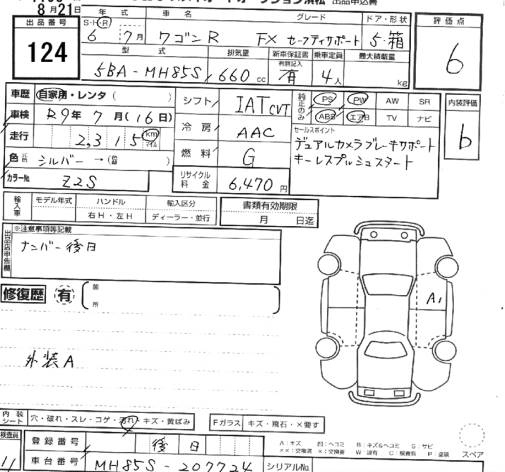 8月21日 出品申込書
出品番号 年式 車名 グレード ドア・形状 評価点
124 S・H・R 6年 7月 ワゴンR FX セーフティサポート 5・箱 6
型式 排気量 新車保証書 乗車定員 最大積載量
有無記入
5BA-MH85S 660cc 有 4人 kg
車歴 自家用・レンタ( )
車検 R9年7月(16日)
走行 2,315 km マイル
色 シルバー →( )
カラーNo. Z2S
シフト IAT CVT
冷房 AAC
燃料 G
リサイクル料金 6,470円
純正のみ PS PW AW SR
ABS エアB TV ナビ
内装評価
b
セールスポイント
デュアルカメラブレーキサポート
キーレスプッシュスタート
輸入車 モデル年式 ハンドル 輸入区分
右H・左H ディーラー・並行
書類有効期限
月 日迄
出品店申告欄
※注意事項等記載
ナンバー後日
修復歴 有 箇所
A1
外装A
内装シート 穴・破れ・スレ・コゲ・汚れ・キズ・黄ばみ
Fガラス キズ・飛石・×要す
A:キズ 凹:ヘコミ B:キズ&ヘコミ S:サビ
××:交換済 ×:要交換 W:波有 C:腐蝕有 P:塗装
スペア
検査員 11
登録番号 後日
車台番号 MH85S-207724 シリアルNo.